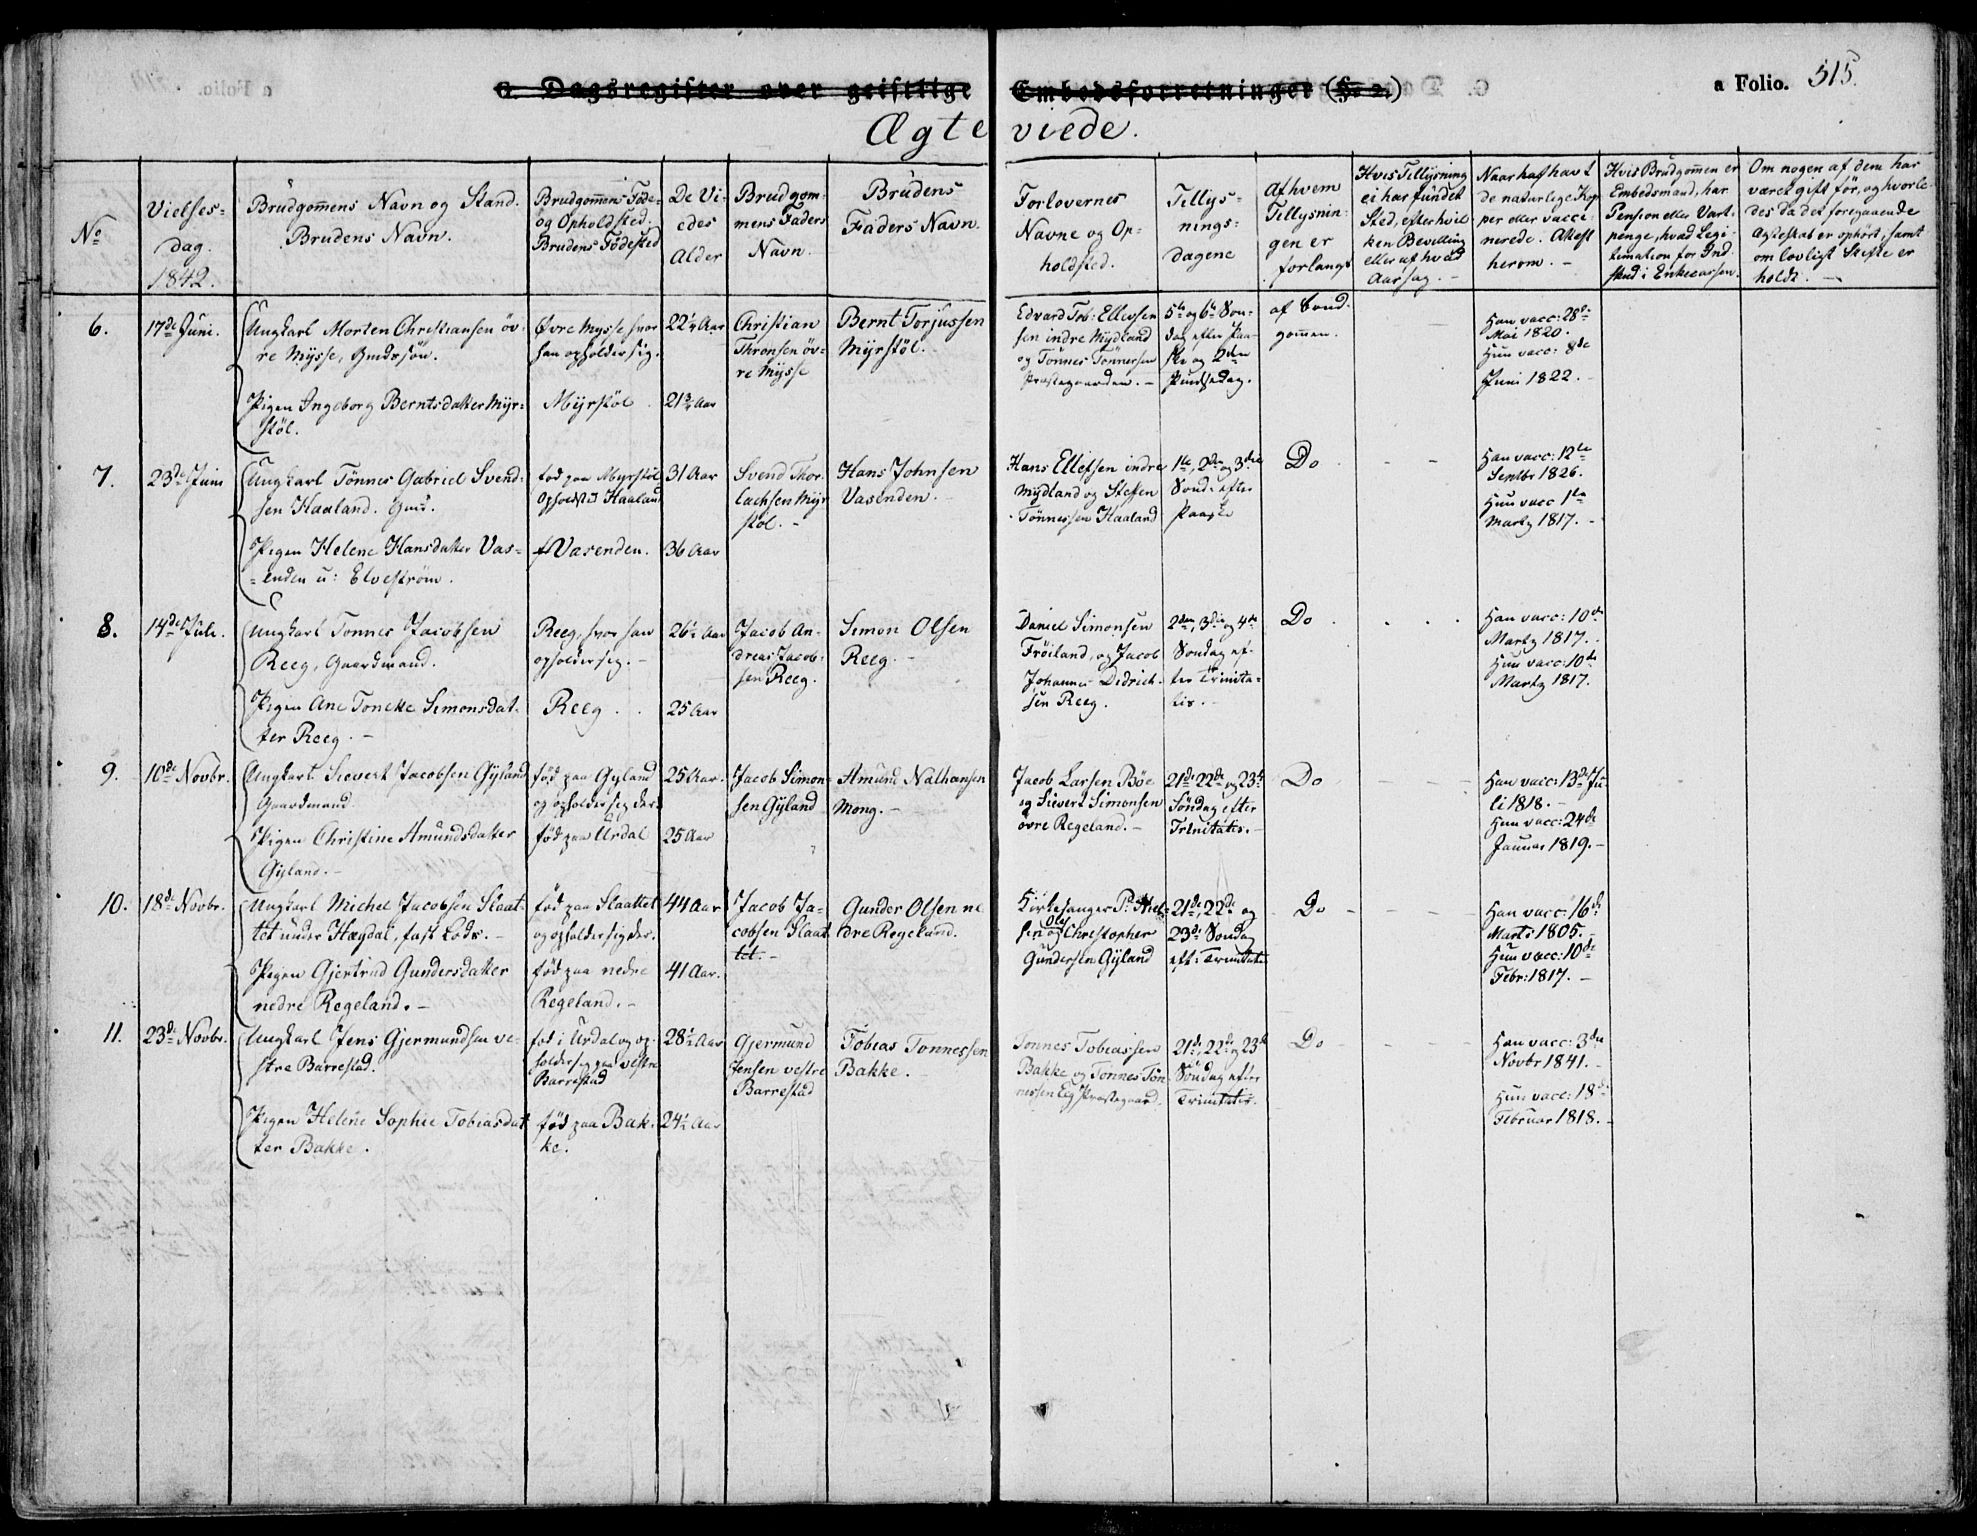 C. Dagsregister over geistlige Embedsforretninger (§. 2.)
a Folio. 515.
Ægteviede.
No
Vielses-
dag.
1842.
Brudgommens Navn og Stand.
Brudens Navn.
Brudgommens Føde-
og Opholdssted.
Brudens Fødested
De Vi-
edes
Alder
Brudgom-
mens Faders
Navn.
Brudens
Faders Navn.
Forlovernes
Navne og Op-
holdsted.
Tillys-
nings-
dagene
Af hvem
Tillysnin-
gen er
forlangt
Hvis Tillysning
ei har fundet
Sted, efter hvil
ken Bevilling
eller af hvad
Aarsag. -
Naar haf havt
de naturlige Kop
per eller vacci-
nerede. Attest
herom. -
Hvis Brudgommen er
Embedsmand, har
Pension eller Vart-
penge, hvad Legi-
timation for Ind-
skud i Enkecassen.
Om nogen af dem har
været gift før, og hvorle-
des Da det foregaaende
Ægteskab er ophört, samt
om lovligt Skifte er
holdt. -
6.
17de Juni.
Ungkarl Morten Christiansen øv-
re Mysse, Gmdssøn.
Pigen Ingeborg Berntsdatter Myr-
støl.
Øvre Mysse hvor
han opholder sig.
Myrstøl
22¼ Aar
21¾ Aar
Christian
Thronsen öv-
re Mysse
Bernt Torjussen
Myrstöl.
Edvard Tob: Ellevsen
sen indre Mydland
og Tönnes Tönnessen
Præstegaarden. -
5te og 6te Søn-
dag efter Paa-
ske og 2den
Pintsedag.
af Brud-
gommen.
Han vacc: 28de
Mai 1820.
Hun vacc: 8de
Juni 1822. -
7.
23de Juni
Ungkarl Tönnes Gabriel Svend-
sen Haaland. Gmd.
Pigen Helene Hansdatter Vas-
enden u: Elvestrøm.
fød paa Myrstøl
Opholdst: Haaland
f Vasenden.
31 Aar
36 Aar
Svend Thor-
lachsen Myr
støl. -
Hans Johnsen
Vasenden. -
Hans Ellefsen indre
Mydland og Steffen
Tönnessen Haaland
1te, 2den og 3die
Sönd: efter
Paaske
Do
Han vacc: 12te
Septbr 1826.
Hun vacc 1te
Marty 1817. -
8.
14de Juli.
Ungkarl Tonnes Jacobsen
Reeg, Gaardmand.
Pigen Ane Toneke Simonsdat-
ter Reeg. -
Reeg, hvor han
opholder sig. -
Reeg.
26½ Aar
25 Aar
Jacob An-
dreas Jacob-
sen Reeg.
Simon Olsen
Reeg. -
Daniel Simonsen
Fröiland, og Jacob
Johannes Didrich-
sen Reeg.
2den, 3die og 4de
Söndag ef-
ter Trinita-
tis. -
Do
Han vacc: 10de
Marty 1817. -
Hun vacc: 10de
Marty 1817.
9.
10de Novbr.
Ungkarl Sievert Jacobsen Gyland
Gaardmand
Pigen Christine Amundsdatter
Gyland. -
fød paa Gyland
og opholder sig der.
fød paa Urdal
25 Aar.
25 Aar
Jacob Simon-
sen Gyland
Amund Nathansen
Mong. -
Jacob Larsen Böe
og Sievert Simonsen
övre Regeland. -
21de 22de og 23de
Söndag efter
Trinitatis. -
Do
Han vacc: 13de Ju-
li 1818. -
Hun vacc: 24de
Januar 1819. -
10.
18de Novbr.
Ungkarl Michel Jacobsen Slaat-
tet under Hægdal, fast Lods. -
Pigen Gjertrud Gundersdatter
nedre Regeland. -
fød paa Slaattet
og opholder sig der.
fød paa nedre
Regeland. -
44 Aar
41 Aar.
Jacob Ja-
cobsen Slaat
tet. -
Gunder Olsen ne
dre Regeland.
Kirkesanger P:
sen og Ole Christopher
Gundersen Gyland
21de, 22de og
23de Söndag
eft: Trinitatis
Do
Han vacc: 16de
Marts 1805. -
Hun vacc: 10de
Febr: 1817. -
11.
23de Novbr.
Ungkarl Jens Gjermundsen ve-
stre Barrestad.
Pigen Helene Sophie Tobiasdat
ter Bakke.
fød i Urdal og op-
holder sig paa vestre
Barrestad
fød paa Bak-
ke.
28½ Aar
24½ Aar
Gjermund
Jensen vestre
Barrestad
Tobias Tonnessen
Bakke.
Tonnes Tobiassen
Bakke og Tonnes Ton-
nessen Præstegaard.
21de, 22de og 23de
Söndag efter
Trinitatis.
Do
Han vacc: 3die
Novbr 1841. -
Hun vacc: 18de
Februar 1818. -